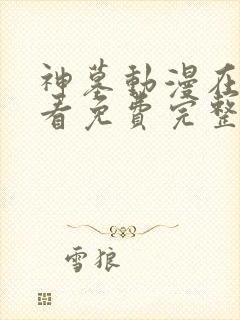 神墓動漫在
看免費完整
雪狼